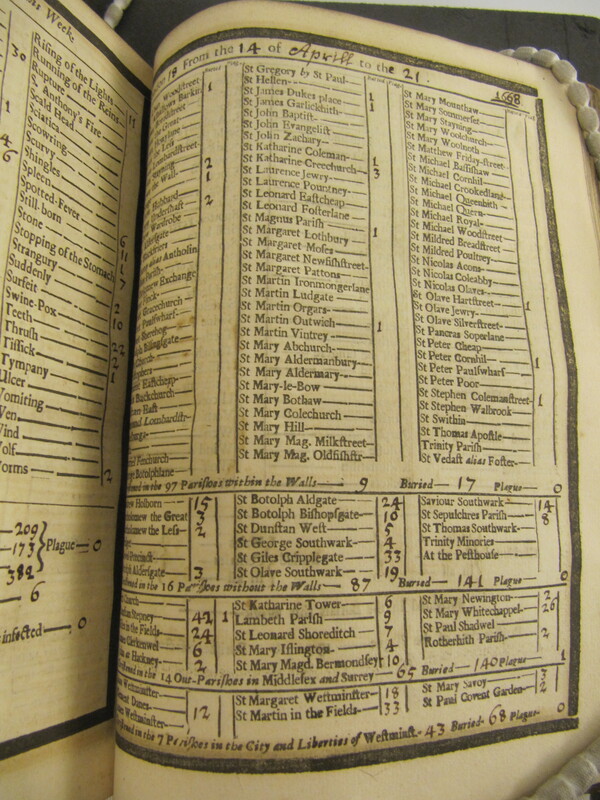 his Week.
Rising of the Lights 11
Running of the Reins
Rupture
S. Anthony's Fire
Scald Head
Sciatica
Scowring
Scurvy
Shingles
Spleen
Spotted-Fever
Still-born
Stone
Stopping of the Stomach
Strangury
Suddenly
Surfeit
Swine-Pox
Teeth
Thrush
Tissick
Tympany
Ulcer
Vomiting
Wen
Wind
Wolf
Worms
209
173
Plague — 0
382
6
infected — 0
18 From the 14 of Aprill to the 21. 1668
St Gregory by St Paul
St Hellen
St James Dukes place 1
St James Garlickhith 1
St John Baptist
St John Evangelist
St John Zachary
St Katharine Coleman 1
St Katharine Creechurch 3
St Laurence Jewry
St Laurence Pountney
St Leonard Eastcheap
St Leonard Fosterlane
St Magnus Parish
St Margaret Lothbury 1
St Margaret Moses
St Margaret Newfishstreet
St Margaret Pattons
St Martin Ironmongerlane
St Martin Ludgate
St Martin Orgars
St Martin Outwich
St Martin Vintrey 1
St Mary Abchurch
St Mary Aldermanbury
St Mary Aldermary
St Mary-le-Bow
St Mary Bothaw
St Mary Colechurch
St Mary Hill
St Mary Mag. Milkstreet
St Mary Mag. Oldfishstr
St Mary Mounthaw
St Mary Sommerset
St Mary Stayning
St Mary Woolchurch
St Mary Woolnoth
St Matthew Friday-street
St Michael Bassishaw
St Michael Cornhil
St Michael Crookedlane
St Michael Queenhith
St Michael Quern
St Michael Royal
St Michael Woodstreet
St Mildred Breadstreet
St Mildred Poultrey
St Nicolas Acons
St Nicolas Coleabby
St Nicolas Olaves
St Olave Hartstreet 1
St Olave Jewry
St Olave Silverstreet
St Pancras Soperlane
St Peter Cheap
St Peter Cornhil 1
St Peter Paulswharf
St Peter Poor
St Stephen Colemanstreet 1
St Stephen Walbrook
St Swithin
St Thomas Apostle
Trinity Parish
St Vedast alias Foster
in the 97 Parishes within the Walls — 9 Buried — 17 Plague — 0
Holborn 15
the Great 3
the Less 2
Aldersgate 3
St Botolph Aldgate 24
St Botolph Bishopsgate 16
St Dunstan West 5
St George Southwark 4
St Giles Cripplegate 33
St Olave Southwark 19
Saviour Southwark 14
St Sepulchres Parish 8
St Thomas Southwark
Trinity Minories
At the Pesthouse
in the 16 Parishes without the Walls — 87 Buried — 141 Plague — 0
Stepney 42
in the Fields 24
Clerkenwel 6
at Hackney 2
St Katharine Tower 6
Lambeth Parish 9
St Leonard Shoreditch 7
St Mary Islington 4
St Mary Magd. Bermondsey 10
St Mary Newington 2
St Mary Whitechappel 26
St Paul Shadwel
Rotherhith Parish 2
in the 14 Out-Parishes in Middlesex and Surrey — 65 Buried — 140 Plague — 1
Westminster 12
St Margaret Westminster 18
St Martin in the Fields 33
St Mary Savoy 3
St Paul Covent Garden 2
in the 7 Parishes in the City and Liberties of Westminst. 43 Buried 68 Plague 0